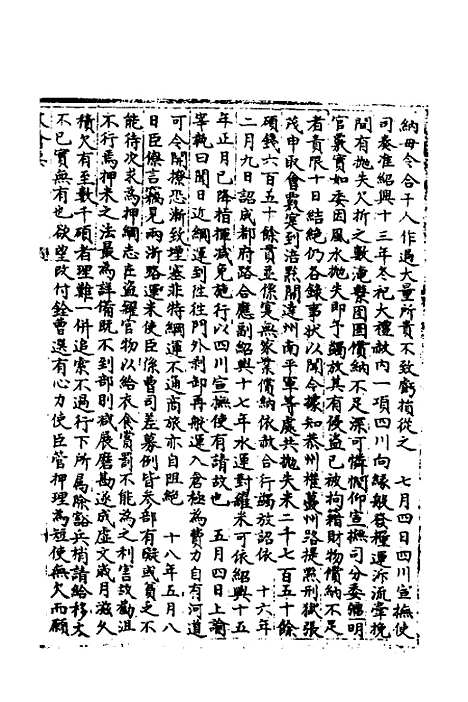 納毋令合干人作過大量所貴不致虧損從之　七月四日四川宣撫使
司奏准紹興十三年冬祀大禮赦内一項四川向緣般發糧運泝流牽挽
間有拋失欠折之數淹繫囹圄償納不足深可憐憫仰宣撫司分委彊明
官覈實如委因風水拋失即予蠲放其有侵盜已被拘籍財物償納不足
者責限十日結絶仍各録事狀以聞今據知恭州權夔州路提㸃刑獄張
茂申取會覈実到涪黔開達州南平軍等處共拋失米二千七百五十餘
碩錢六百五十餘貫並係寔無家業償納依赦合行蠲放詔依　十六年
二月九日詔成都府路合應副紹興十七年水運對糴米可依紹興十五
年正月已降指揮減免施行以四川宣撫使有請故也　五月四日上諭
宰執曰聞日近綱運到往往門外剩卸再般運入倉極為費力自有河道
可令開撩恐漸致堙塞非特綱運不通商旅亦自阻絶　十八年五月八
日臣僚言竊見兩浙路運米使臣係曹司差募例皆參部有礙或貧乏不
能待次求為押綱志在盜糶官物以給衣食賞罰不能為之利害故勸沮
不行焉押米之法最為詳備既不到部則成展磨勘遂成虚文歳月滋久
積欠有至數千碩者理難一併追索不過行下所属除豁兵梢請給移文
不已實無有也欲望改付銓曹選有心力使臣管押理為短使無欠而願